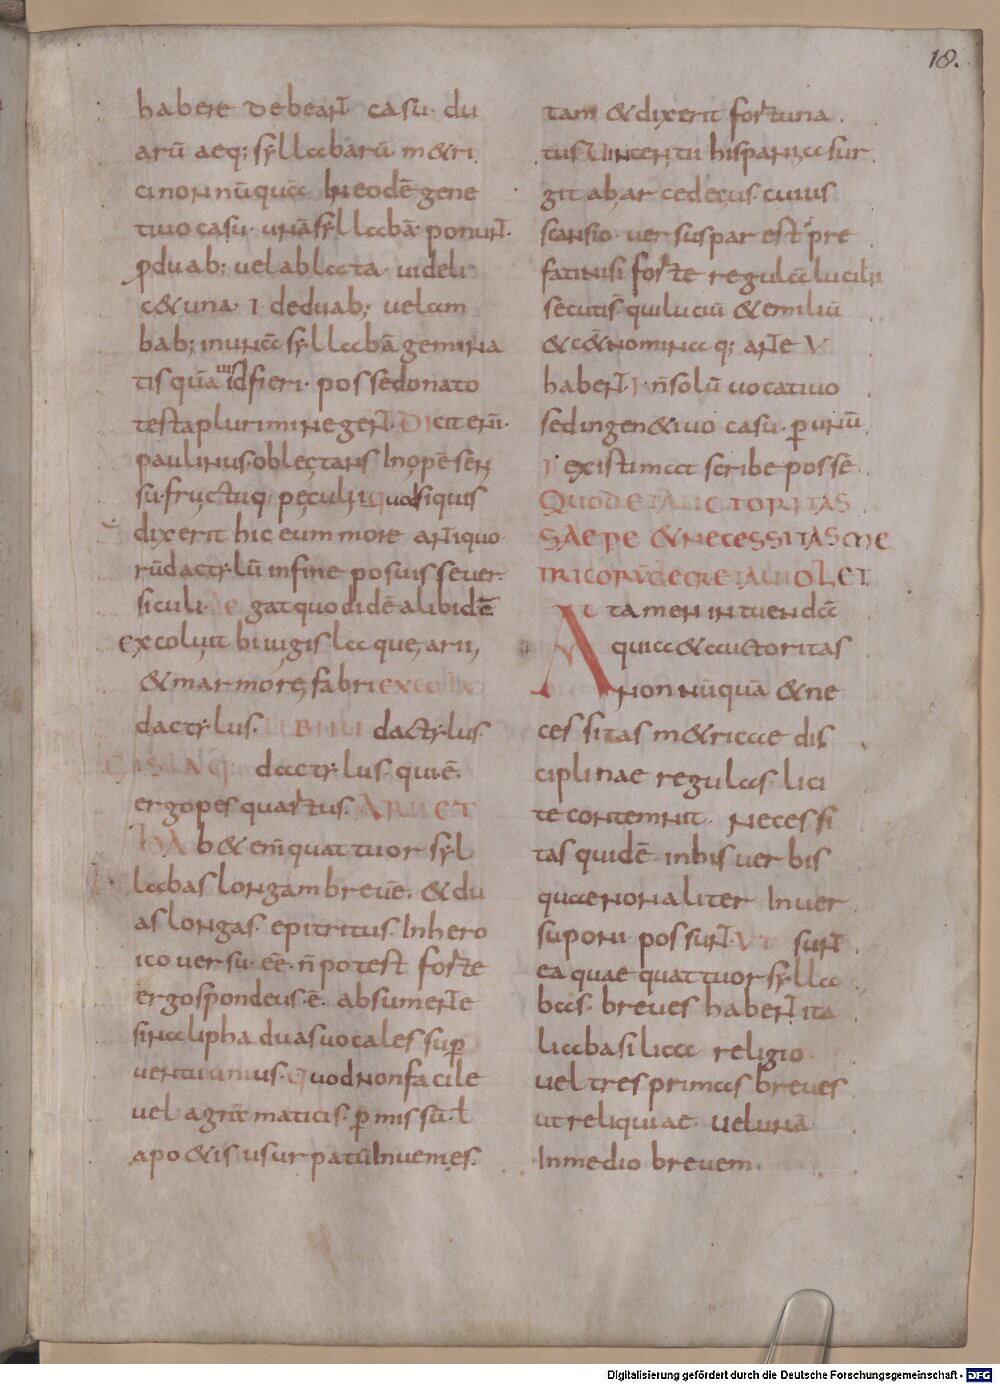 18.
habere debeant casu du
arū aeq; syllabarū m&ri
ci non nūquā In eodē gene
tiuo casu unā syllabā ponunt
ꝓ duab; uel ablata uideli
c& una I de duab; uel cum
bab; in unā syllabā gemina
tis quāuis id fieri posse donato
testa plurimi negent Dicit enī
paulinus oblectans Inopē sen
su fructuq; peculii Quod si quis
dixerit hic eum more antiquo
rū dactylū in fine posuisse uer
siculi gat quod idē alibi dē
Excoluit biiugis laquearii,
& marmore fabri EXCO
dactylus. BIIU dactylus
GISLAQ; dactylus qui ē
ergo pes quartus. ARII ET
hab& enī quattuor syl
labas longam breuē. & du
as longas. epitritus In hero
ico uersu. eē. ñ potest forte
ergo spondeus ē absumente
sinalipha duas uocales sup
uentu unius. Quod non facile
uel agrāmaticis. pmissū. l
apo&is usurpatū Inuenies.
tam & dixerit fortuna
tus Uincentii hispana sur
git abarce decus cuius
scansio uersus par est pre
fati nisi forte regulā lucilii
secutis qui luciū & emiliū
& c&nomina q; ante V
habent I ñ solū uocatiuo
sed in gen&iuo casu p unū
I existimat scribe posse
QUOD ET AUCTORITAS
SAEPE & NECESSITAS ME
TRICORŪ DECRETA UIOLET
At tamen intuendā
quia & auctoritas
non nūquā & ne
cessitas m&ricae dis
ciplinae regulas lici
te contemnit. Neces si
tas quidē in his uerbis
quae non aliter In uer
su poni possunt UT sunt
ea quae quattuor sylla
bas breues habent ita
lia basilica religio
uel tres primas breues
ut reliquiae uel unā
In medio breuem.
Digitalisierung gefördert durch die Deutsche Forschungsgemeinschaft - DFG